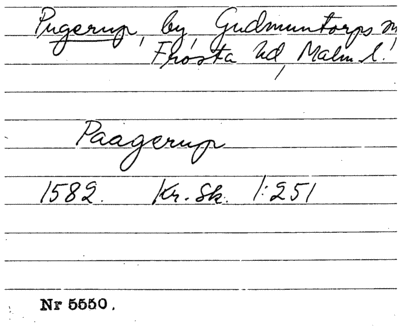 Pugerup, by, Gudmuntorps sn
Frosta hd, Malm l.
Paagerup
1582. Kr. Sk. 1:251
Nr 5550.